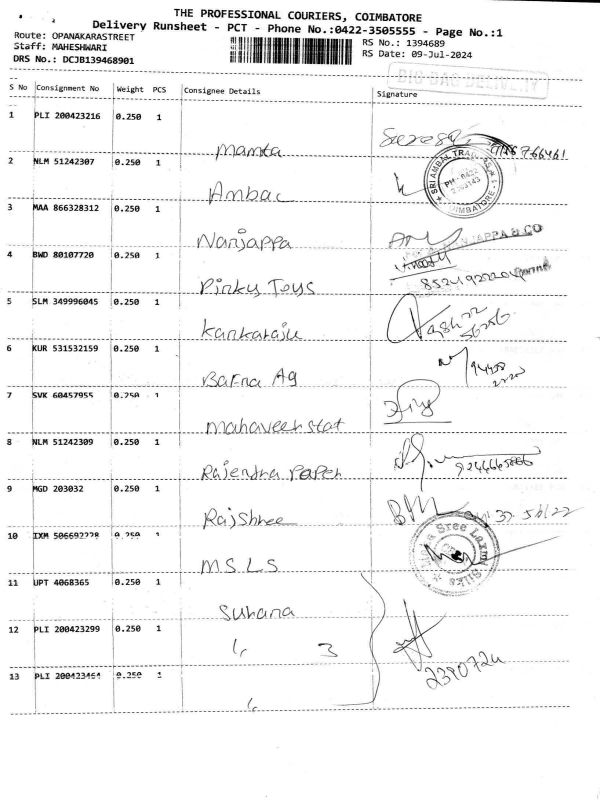 THE PROFESSIONAL COURIERS, COIMBATORE
Delivery Runsheet - PCT - Phone No.:0422-3505555 - Page No.:1
Route: OPANAKARASTREET
RS No.: 1394689
Staff: MAHESHWARI
RS Date: 09-Jul-2024
DRS No.: DCJB139468901
BIG BAG DELIVERY
S No Consignment No Weight PCS Consignee Details Signature
1 PLI 200423216 0.250 1
Mamta
2 NLM 51242307 0.250 1
Ambal
SRI AMBAL
COIMBATORE
3 MAA 866328312 0.250 1
Nanjappa
NANJAPPA & CO
4 BWD 80107720 0.250 1
Pinky Toys
5 SLM 349996045 0.250 1
Kankaraju
6 KUR 531532159 0.250 1
Barna Ag
7 SVK 60457955 0.250 1
Mahaveer stat
8 NLM 51242309 0.250 1
Rajendra Paper
9 MGD 203032 0.250 1
Rajshree
10 IXM 506692228 0.250 1
M.S.L.S
Sree Laxmi Silks
11 UPT 4068365 0.250 1
Suhana
12 PLI 200423299 0.250 1
3
13 PLI 200423464 0.250 1